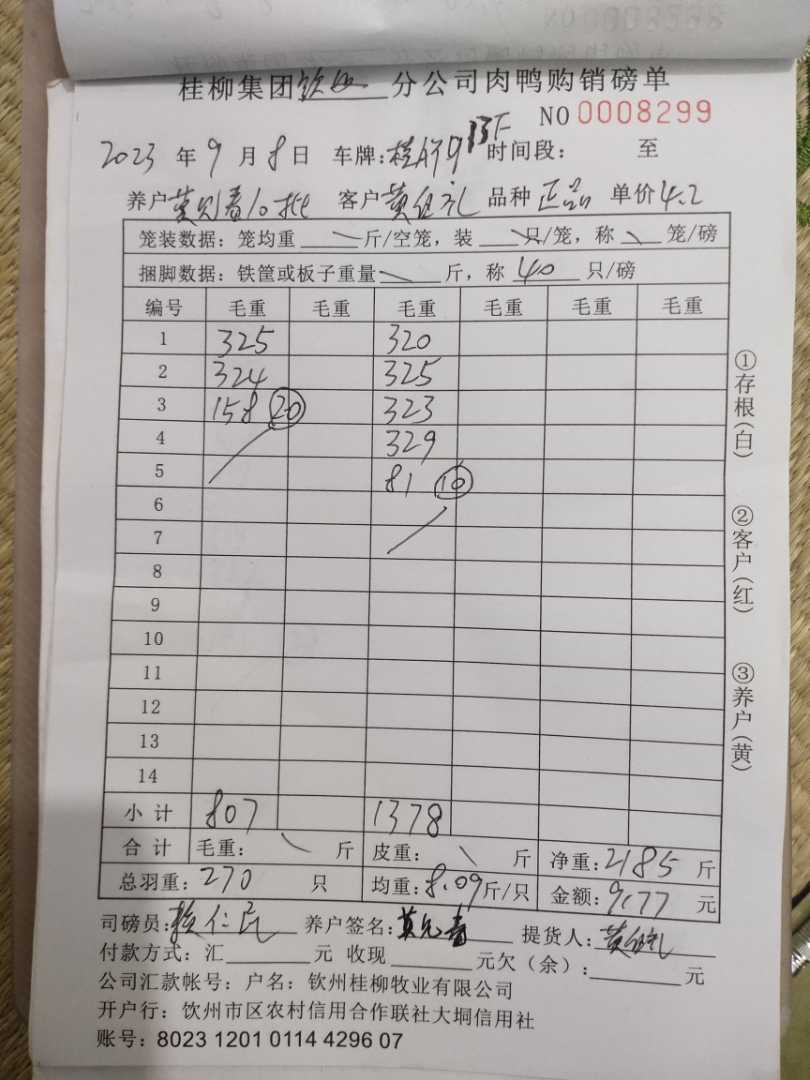 桂柳集团钦州分公司肉鸭购销磅单
NO 0008299
2023 年 9 月 8 日 车牌: 时间段: 至
养户 10批 客户 品种 正品 单价 4.2
笼装数据: 笼均重 斤/空笼, 装 只/笼, 称 笼/磅
捆脚数据: 铁筐或板子重量 斤, 称 40 只/磅
编号 毛重 毛重 毛重 毛重 毛重 毛重
1 325 320
2 324 325
3 158 20 323
4 329
5 81 10
6
7
8
9
10
11
12
13
14
小计 807 1378
合计 毛重: 斤 皮重: 斤 净重: 2185 斤
总羽重: 270 只 均重: 8.09 斤/只 金额: 9177 元
司磅员: 养户签名: 提货人:
付款方式: 汇 元 收现 元欠(余): 元
公司汇款帐号: 户名: 钦州桂柳牧业有限公司
开户行: 钦州市区农村信用合作联社大垌信用社
账号: 8023 1201 0114 4296 07
①存根(白)
②客户(红)
③养户(黄)